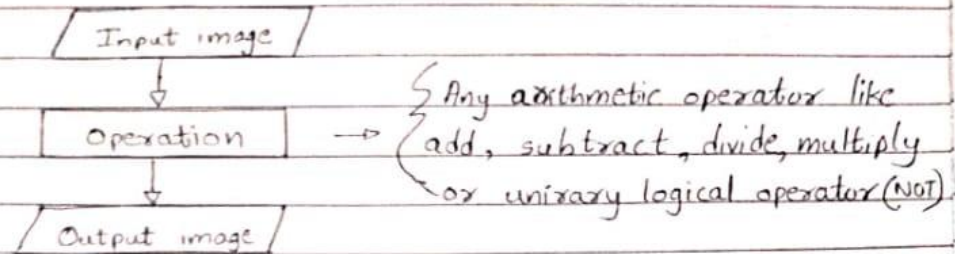 Input image
Operation
Any arithmetic operator like
add, subtract, divide, multiply
or unirary logical operator (NOT)
Output image